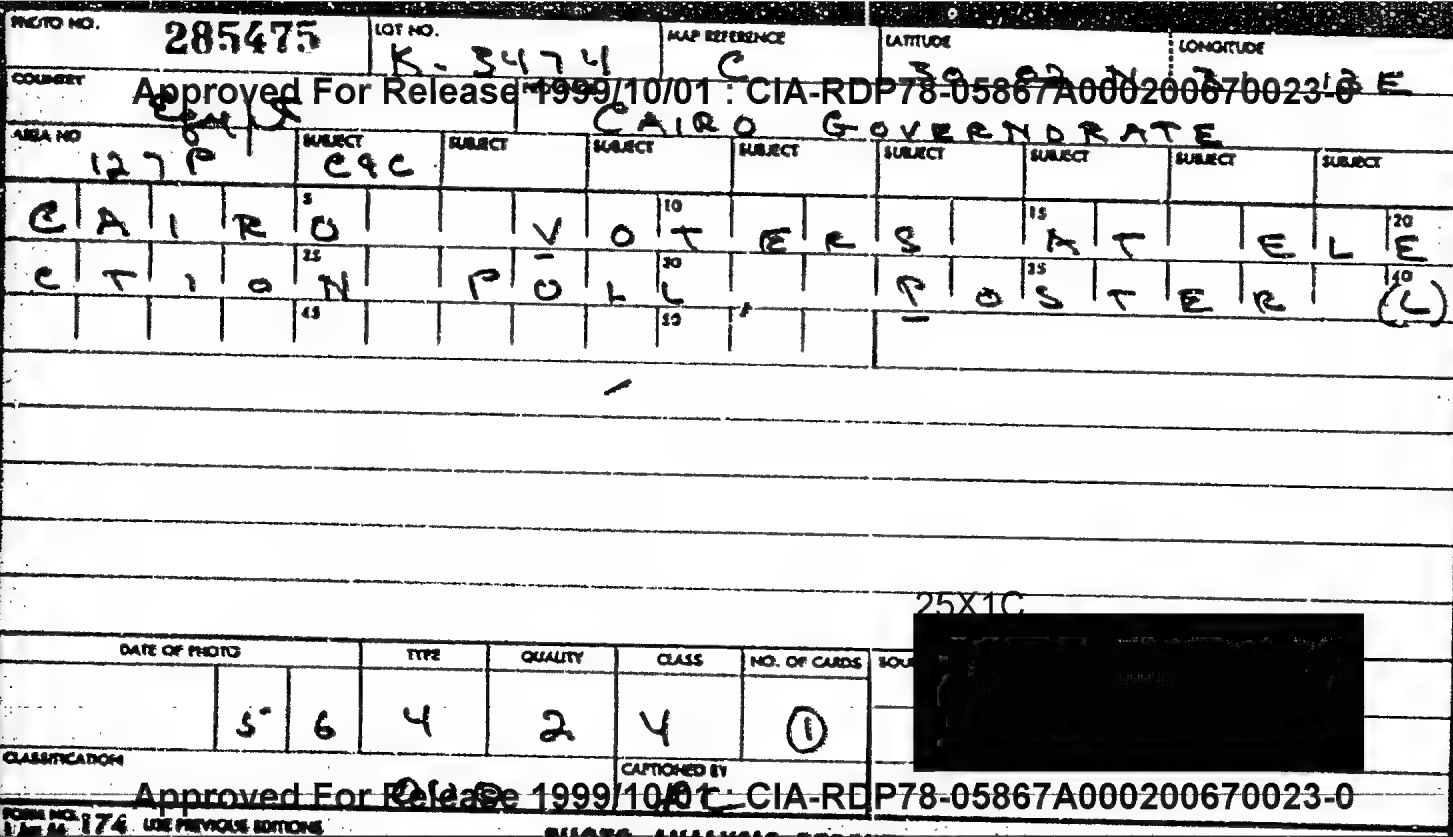 PHOTO NO. 285475 LOT NO. K-3474 MAP REFERENCE C LATITUDE 30 02 N LONGITUDE 31 13 E
COUNTRY Egypt
Approved For Release 1999/10/01 : CIA-RDP78-05867A000200670023-0
CAIRO GOVERNORATE
AREA NO 127P SUBJECT C&C SUBJECT SUBJECT SUBJECT SUBJECT SUBJECT SUBJECT SUBJECT
5 10 15 20
CAIRO VOTERS AT ELE
25 30 35 40
CTION POLL, POSTER (L)
45 50
25X1C
DATE OF PHOTO TYPE QUALITY CLASS NO. OF CARDS SOU
5 6 4 2 4 1
CLASSIFICATION CAPTIONED BY
Approved For Release 1999/10/01 : CIA-RDP78-05867A000200670023-0
FORM NO. 174 USE PREVIOUS EDITIONS